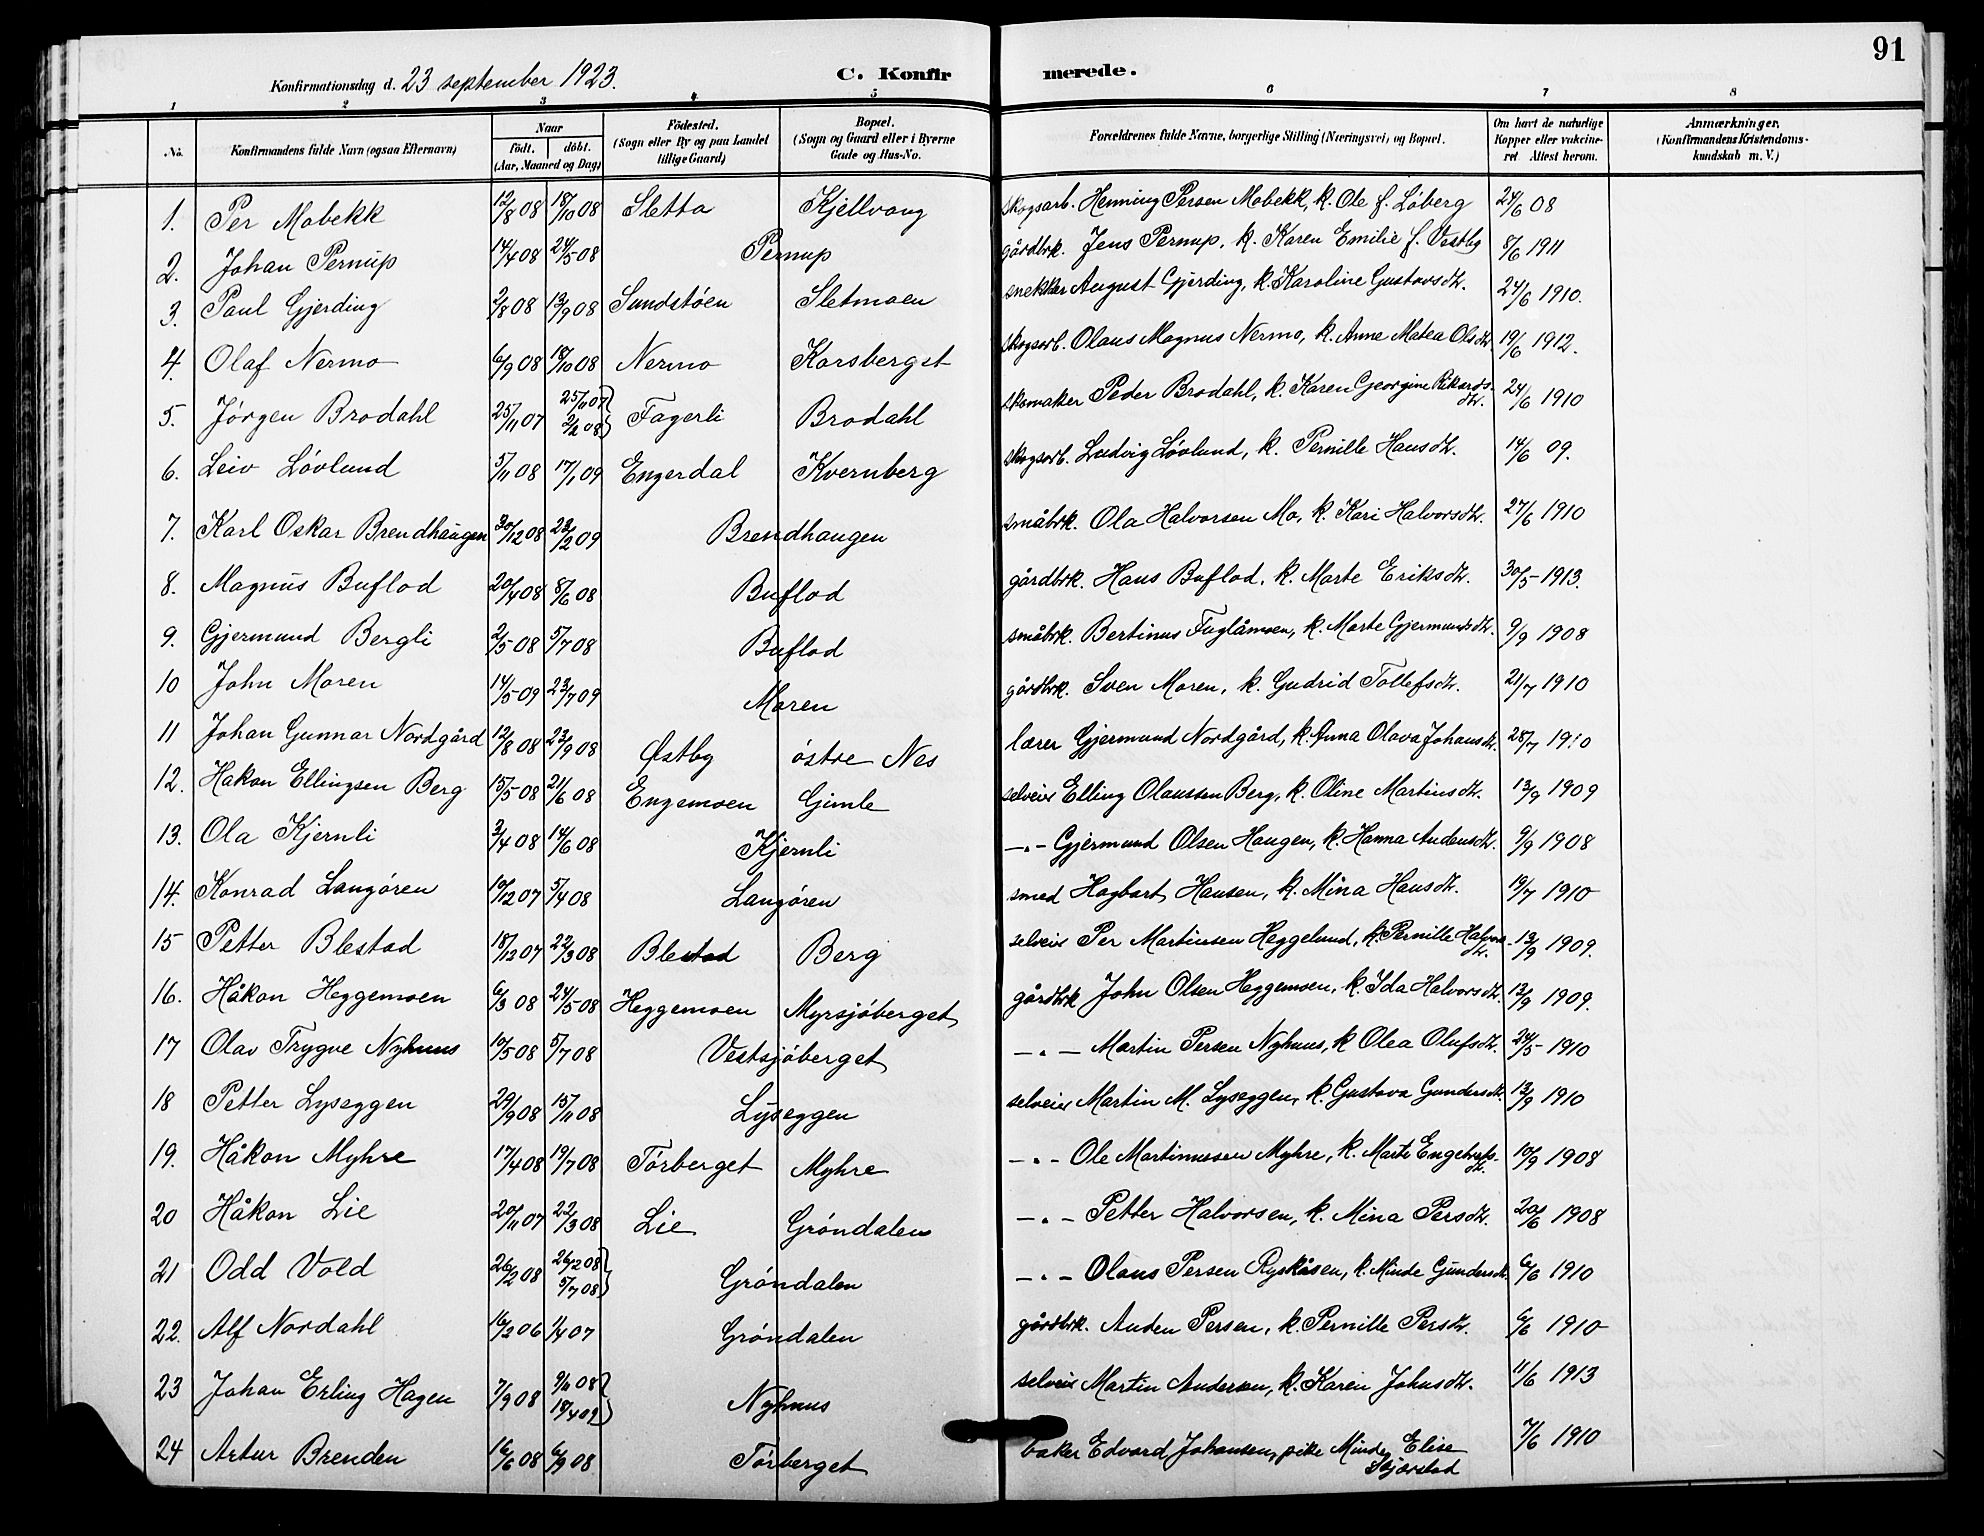 91
Konfirmationsdag d. 23 september 1923.
C. Konfirmerede.
1 2 3 4 5 6 7 8
No. Konfirmandens fulde Navn (ogsaa Efternavn) Naar födt. döbt. (Aar, Maaned og Dag) Födested. (Sogn eller By og paa Landet tillige Gaard) Bopæl. (Sogn og Gaard eller i Byerne Gade og Hus-No. Forældrenes fulde Navne, borgerlige Stilling (Næringsvei) og Bopæl. Om havt de naturlige Kopper eller vakcineret Attest herom. Anmærkninger. (Konfirmandens Kristendomskundskab m. V.)
1. Per Mobekk 12/8 08 18/10 08 Sletta Kjellvang skogsarb. Henning Persen Mobekk, k. Ole f. Löberg 24/6 08
2. Johan Pernup 14/4 08 24/5 08 Pernup gårdbrk. Jens Pernup, k. Karen Emilie f. Vestby 8/6 1911
3. Paul Gjerding 2/8 08 13/9 08 Sundstöen Sletmoen snekker August Gjerding, k. Karoline Gustavsdtr. 24/6 1910.
4. Olaf Nermo 6/9 08 18/10 08 Nermo Korsberget skogsarb. Olaus Magnus Nermo, k. Anne Matea Olsdtr. 19/6 1912.
5. Jörgen Brodahl 25/11 07 25/11 07 2/2 08 Fagerli Brodahl skomaker Peder Brodahl, k. Karen Georgine Rikardsdtr. 24/6 1910
6. Leiv Lövlund 5/11 08 17/1 09 Engerdal Kvernberg skogsarb. Ludvig Lövlund, k. Pernille Hansdtr. 14/6 09.
7. Karl Oskar Brendhaugen 30/12 08 23/2 09 Brendhaugen småbrk. Ola Halvorsen Mo, k. Kari Halvorsdtr. 27/6 1910
8. Magnus Buflod 20/4 08 8/6 08 Buflod gårdbrk. Hans Buflod, k. Marte Eriksdtr. 30/5 1913.
9. Gjermund Bergli 2/5 08 5/7 08 Buflod småbrk. Bertinus Fuglåmoen, k. Marte Gjermundsdtr. 9/9 1908
10 John Moren 14/5 09 23/7 09 Moren gårdbrk. Sven Moren, k. Gudrid Tollefsdtr. 21/7 1910
11 Johan Gunnar Nordgård 12/8 08 23/9 08 Östby östre Nes lærer Gjermund Nordgård, k. Anna Olava Johansdtr. 28/7 1910
12. Håkon Ellingsen Berg 15/5 08 21/6 08 Engemoen Gimle selveier Elling Olaussen Berg, k. Oline Martinsdtr. 13/9 1909
13. Ola Kjernli 3/4 08 14/6 08 Kjernli -"- Gjermund Olsen Haugen, k. Hanna Andensdtr. 9/9 1908
14. Konrad Langören 10/12 07 5/4 08 Langören smed Hagbart Hansen, k. Mina Hansdtr. 19/7 1910
15 Petter Blestad 18/12 07 22/3 08 Blestad Berg selveier Per Martinsen Heggelund, k. Pernille Halvorsdtr. 13/9 1909.
16. Håkon Heggemoen 6/3 08 24/5 08 Heggemoen Myrsjöberget gårdbrk John Olsen Heggemoen, k. Ida Halvorsdtr. 13/9 1909.
17 Olav Trygve Nyhuus 10/5 08 5/7 08 Vestsjöberget -"- Martin Persen Nyhuus, k Olea Olufsdtr. 24/5 1910
18 Petter Lyseggen 29/9 08 15/11 08 Lyseggen selveier Martin M. Lyseggen, k. Gustava Gundersdtr. 13/9 1910
19. Håkon Myhre 17/4 08 19/7 08 Törberget Myhre -"- Ole Martinusen Myhre, k. Marte 10/9 1908
20 Håkon Lie 20/11 07 22/3 08 Lie Gröndalen -"- Petter Halvorsen, k. Mina Persdtr. 20/6 1908
21 Odd Vold 26/2 08 26/2 08 5/7 08 Gröndalen -"- Olaus Persen Ryskåsen, k. Minde Gundersdtr. 6/6 1910
22. Alf Nordahl 16/2 06 1/4 07 Gröndalen gårdbrk. Auden Persen, k. Pernille Persdtr. 6/6 1910
23 Johan Erling Hagen 7/9 08 9/11 08 18/4 09 Nyhuus selveier Martin Andersen, k. Karen Johnsdtr. 11/6 1913
24 Artur Brenden 16/6 08 6/9 08 Törberget baker Edvard Johansen, pike Minda Elise Skjærstad 7/6 1910